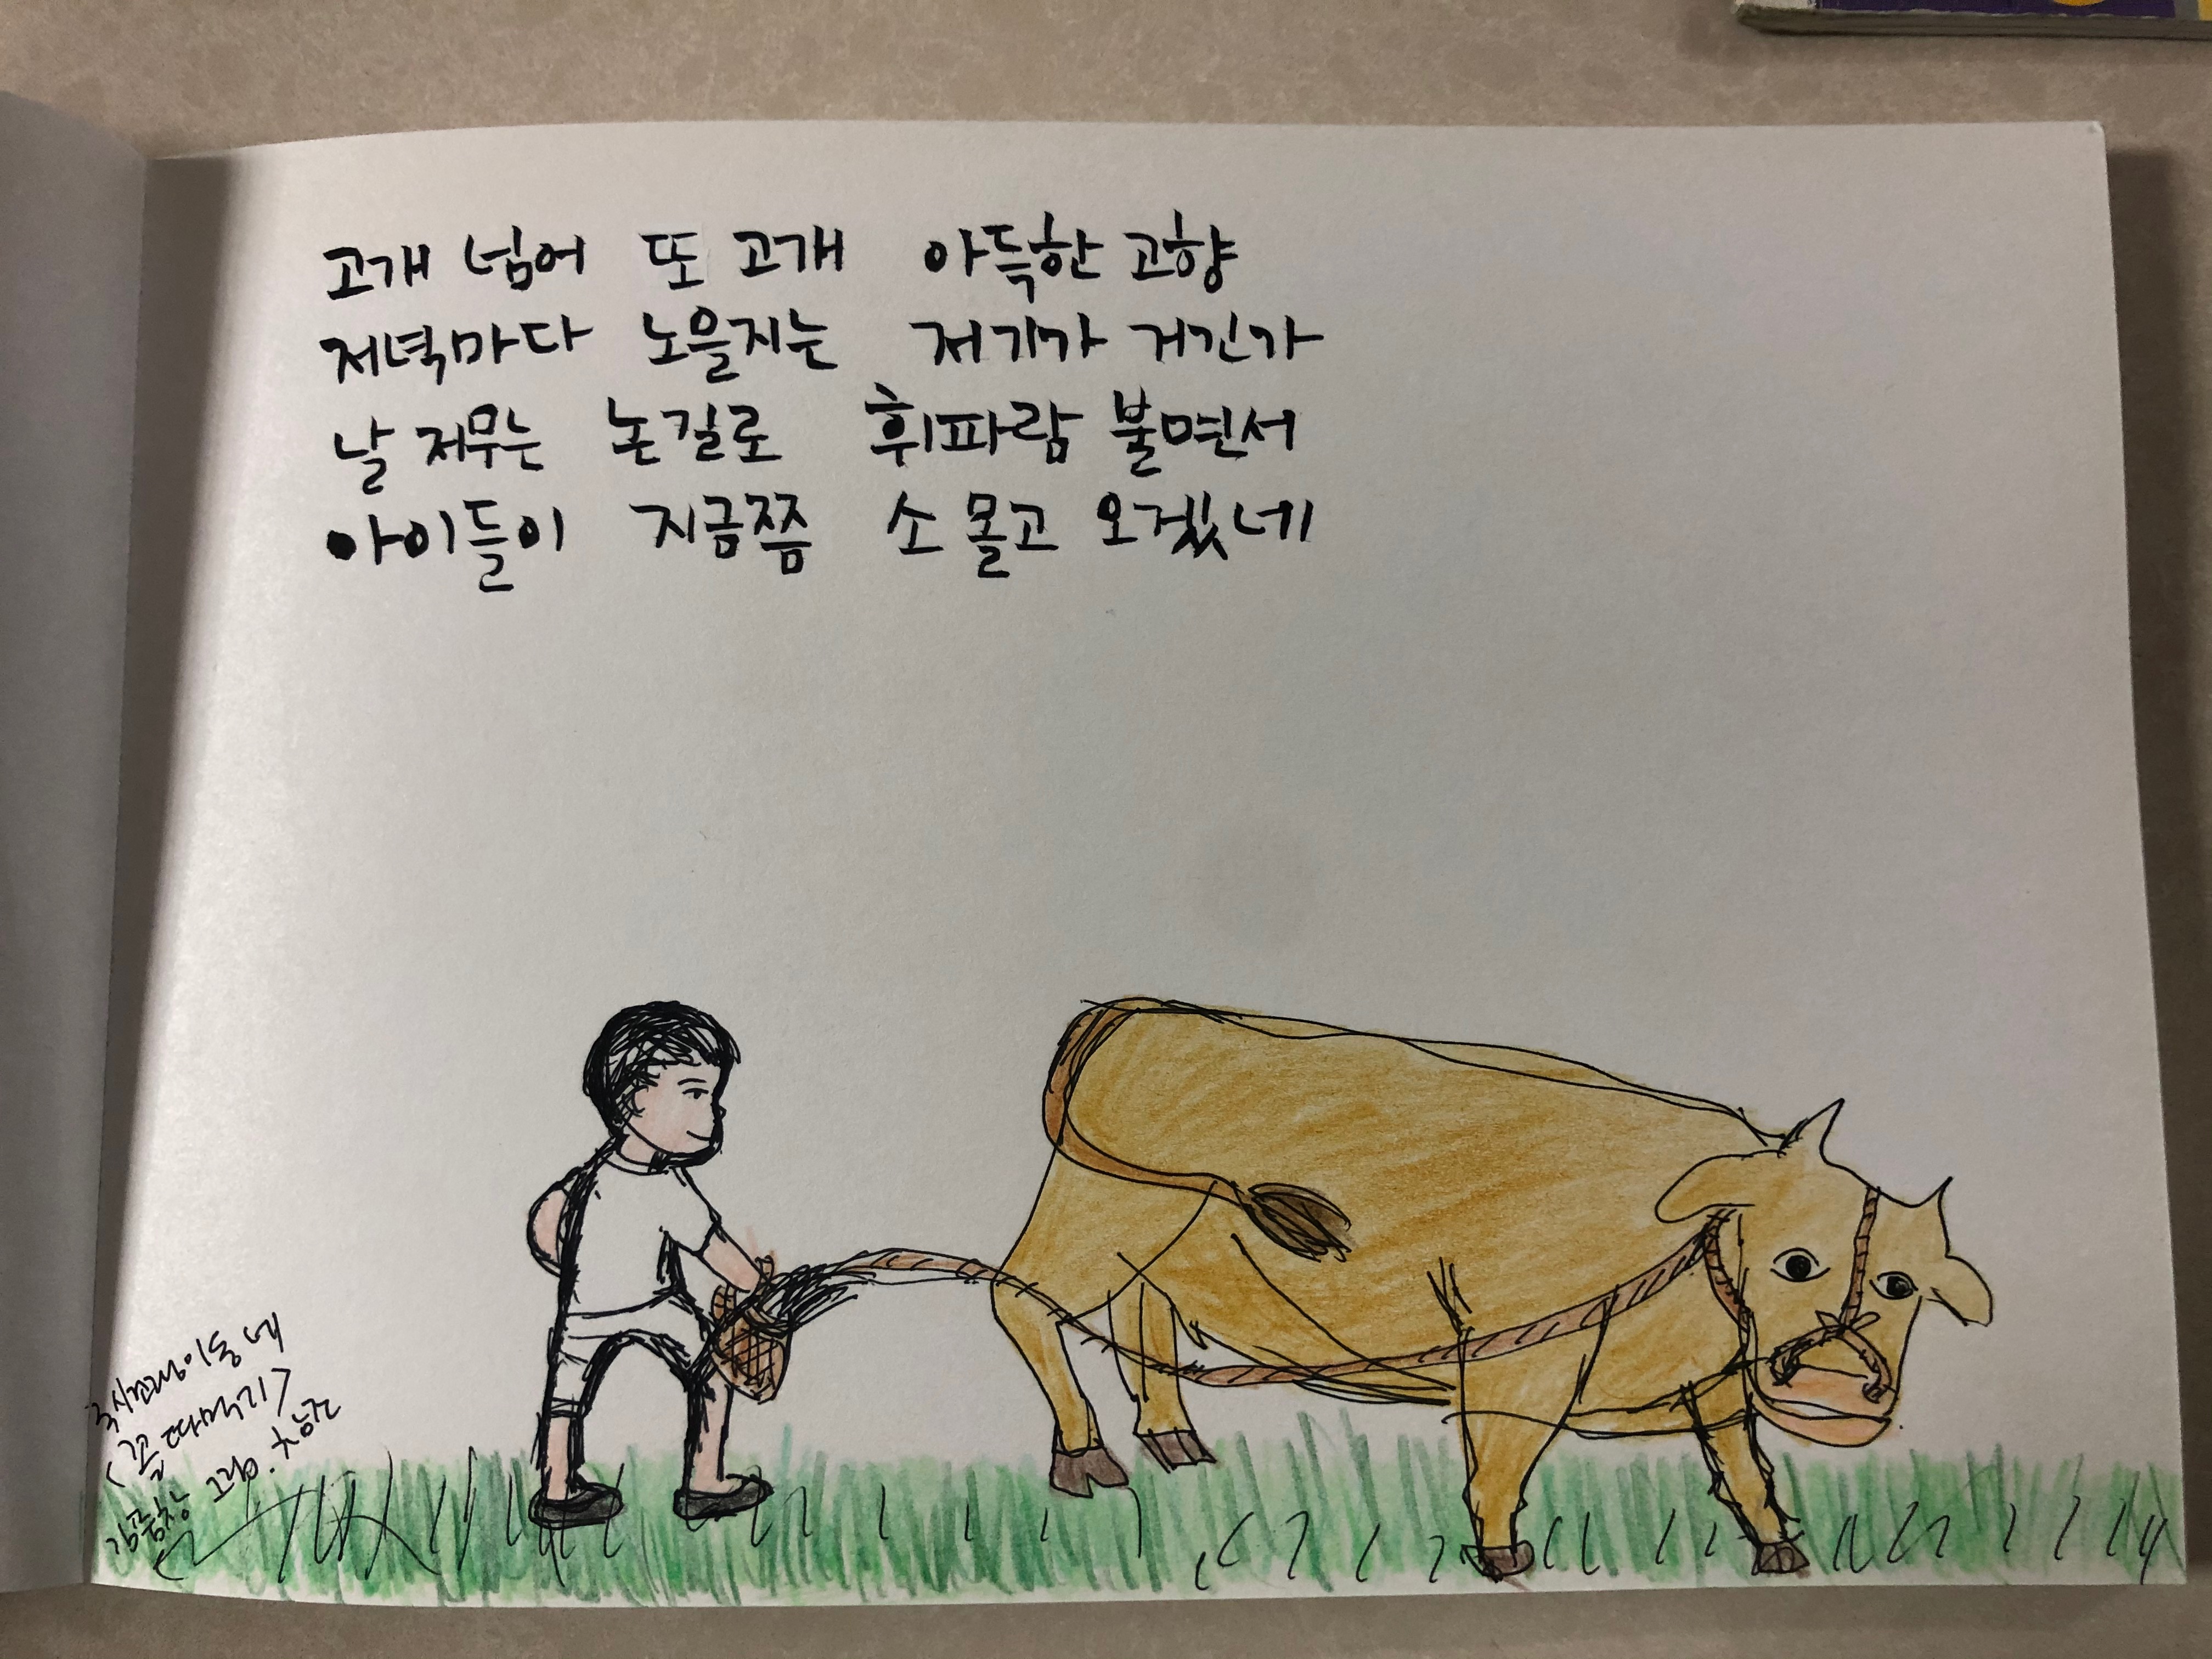 고개 넘어 또 고개 아득한 고향
저녁마다 노을지는 저기가 거긴가
날 저무는 논길로 휘파람 불면서
아이들이 지금쯤 소 몰고 오겠네
<꼴 따먹기>